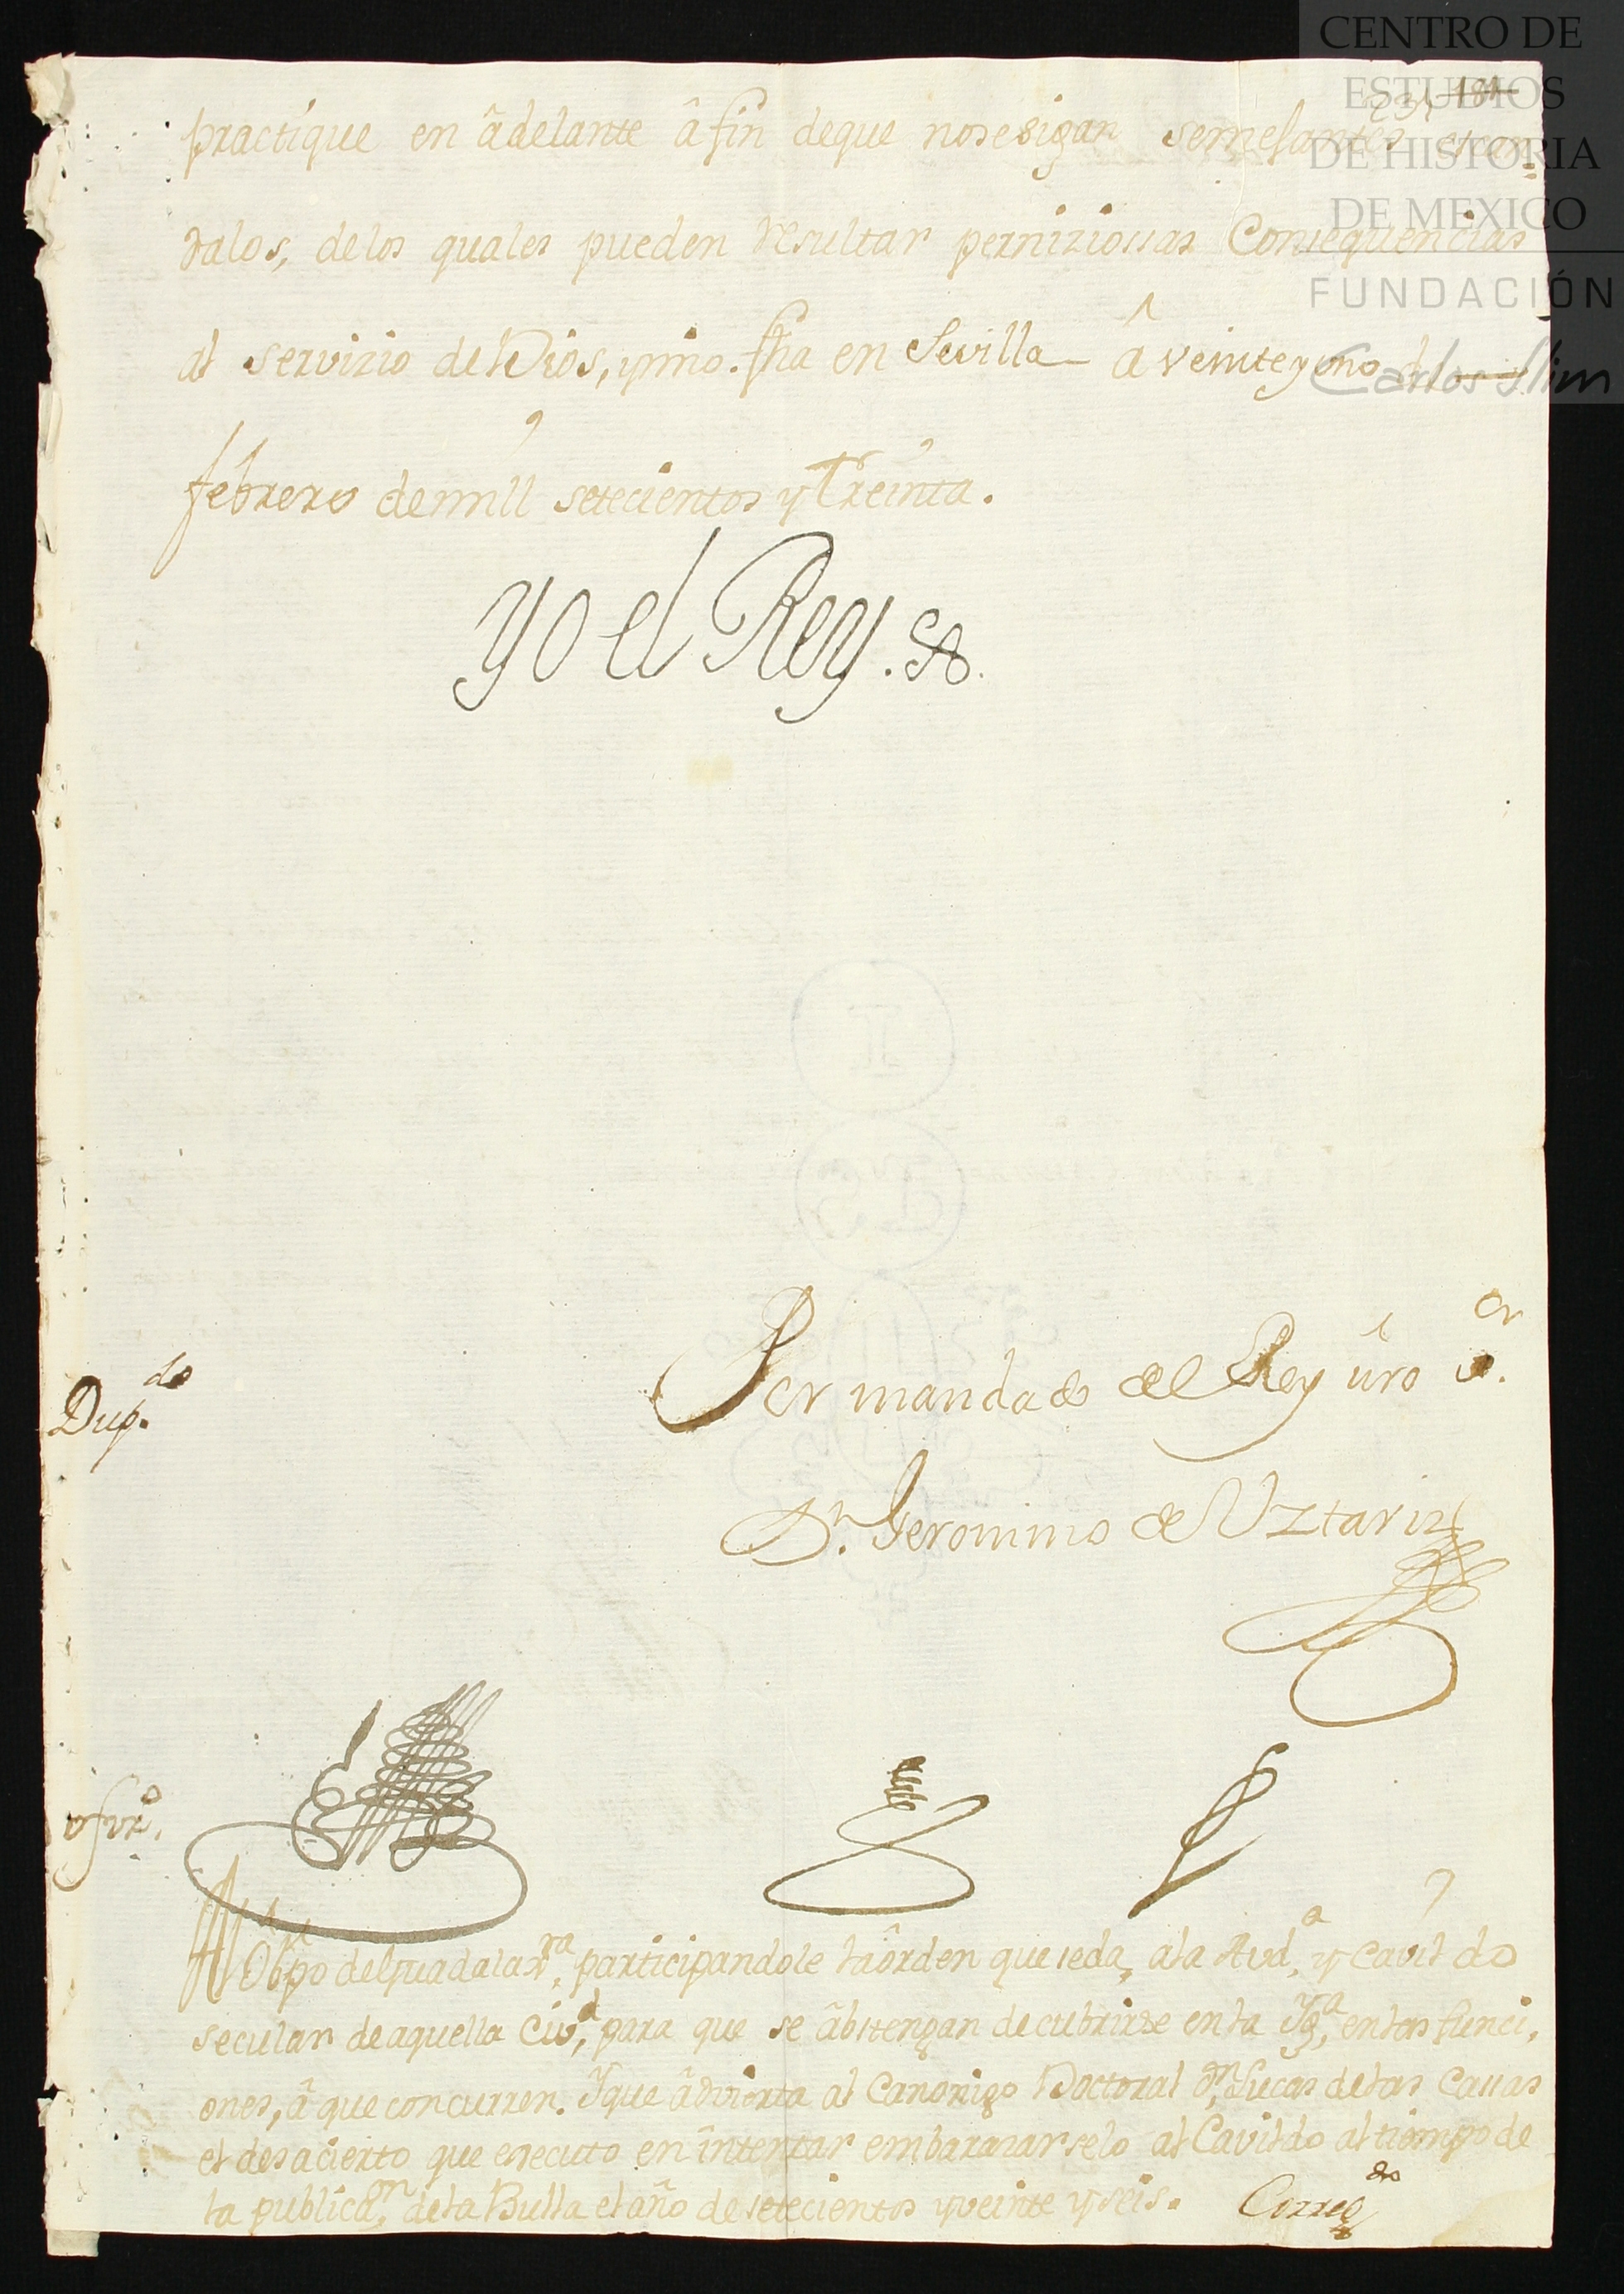 CENTRO DE
ESTUDIOS
DE HISTORIA
DE MEXICO
FUNDACIÓN
Carlos Slim
181
practíque en âdelante â fin deque nosesigan semejantes escan=
dalos, delos quales pueden resultar perniziossas Consequencias
al servizio de Dios, y mio. fha en Sevilla â veinte y uno de
febrero demill setecientos y Treinta.
Yo el Rey.
Por mandado del Rey nro s.or
Dup.do
D.n Geronimo de Uztariz
Al Obpo deGuadalax.ra participandole la ôrden que seda, ala Aud.a y Cavildo
secular de aquella Ciu.d, para que se âbstengan de cubrirse en la Yg.a, en las funci,
ones, â que concurren. Y que âdvierta al Canonigo Doctoral D.n Lucas delas Casas
el desacierto que executo en intentar embarazarselo al Cavildo al tiempo de
la publica.on dela Bulla el año de setecientos y veinte y seis. Correg.do